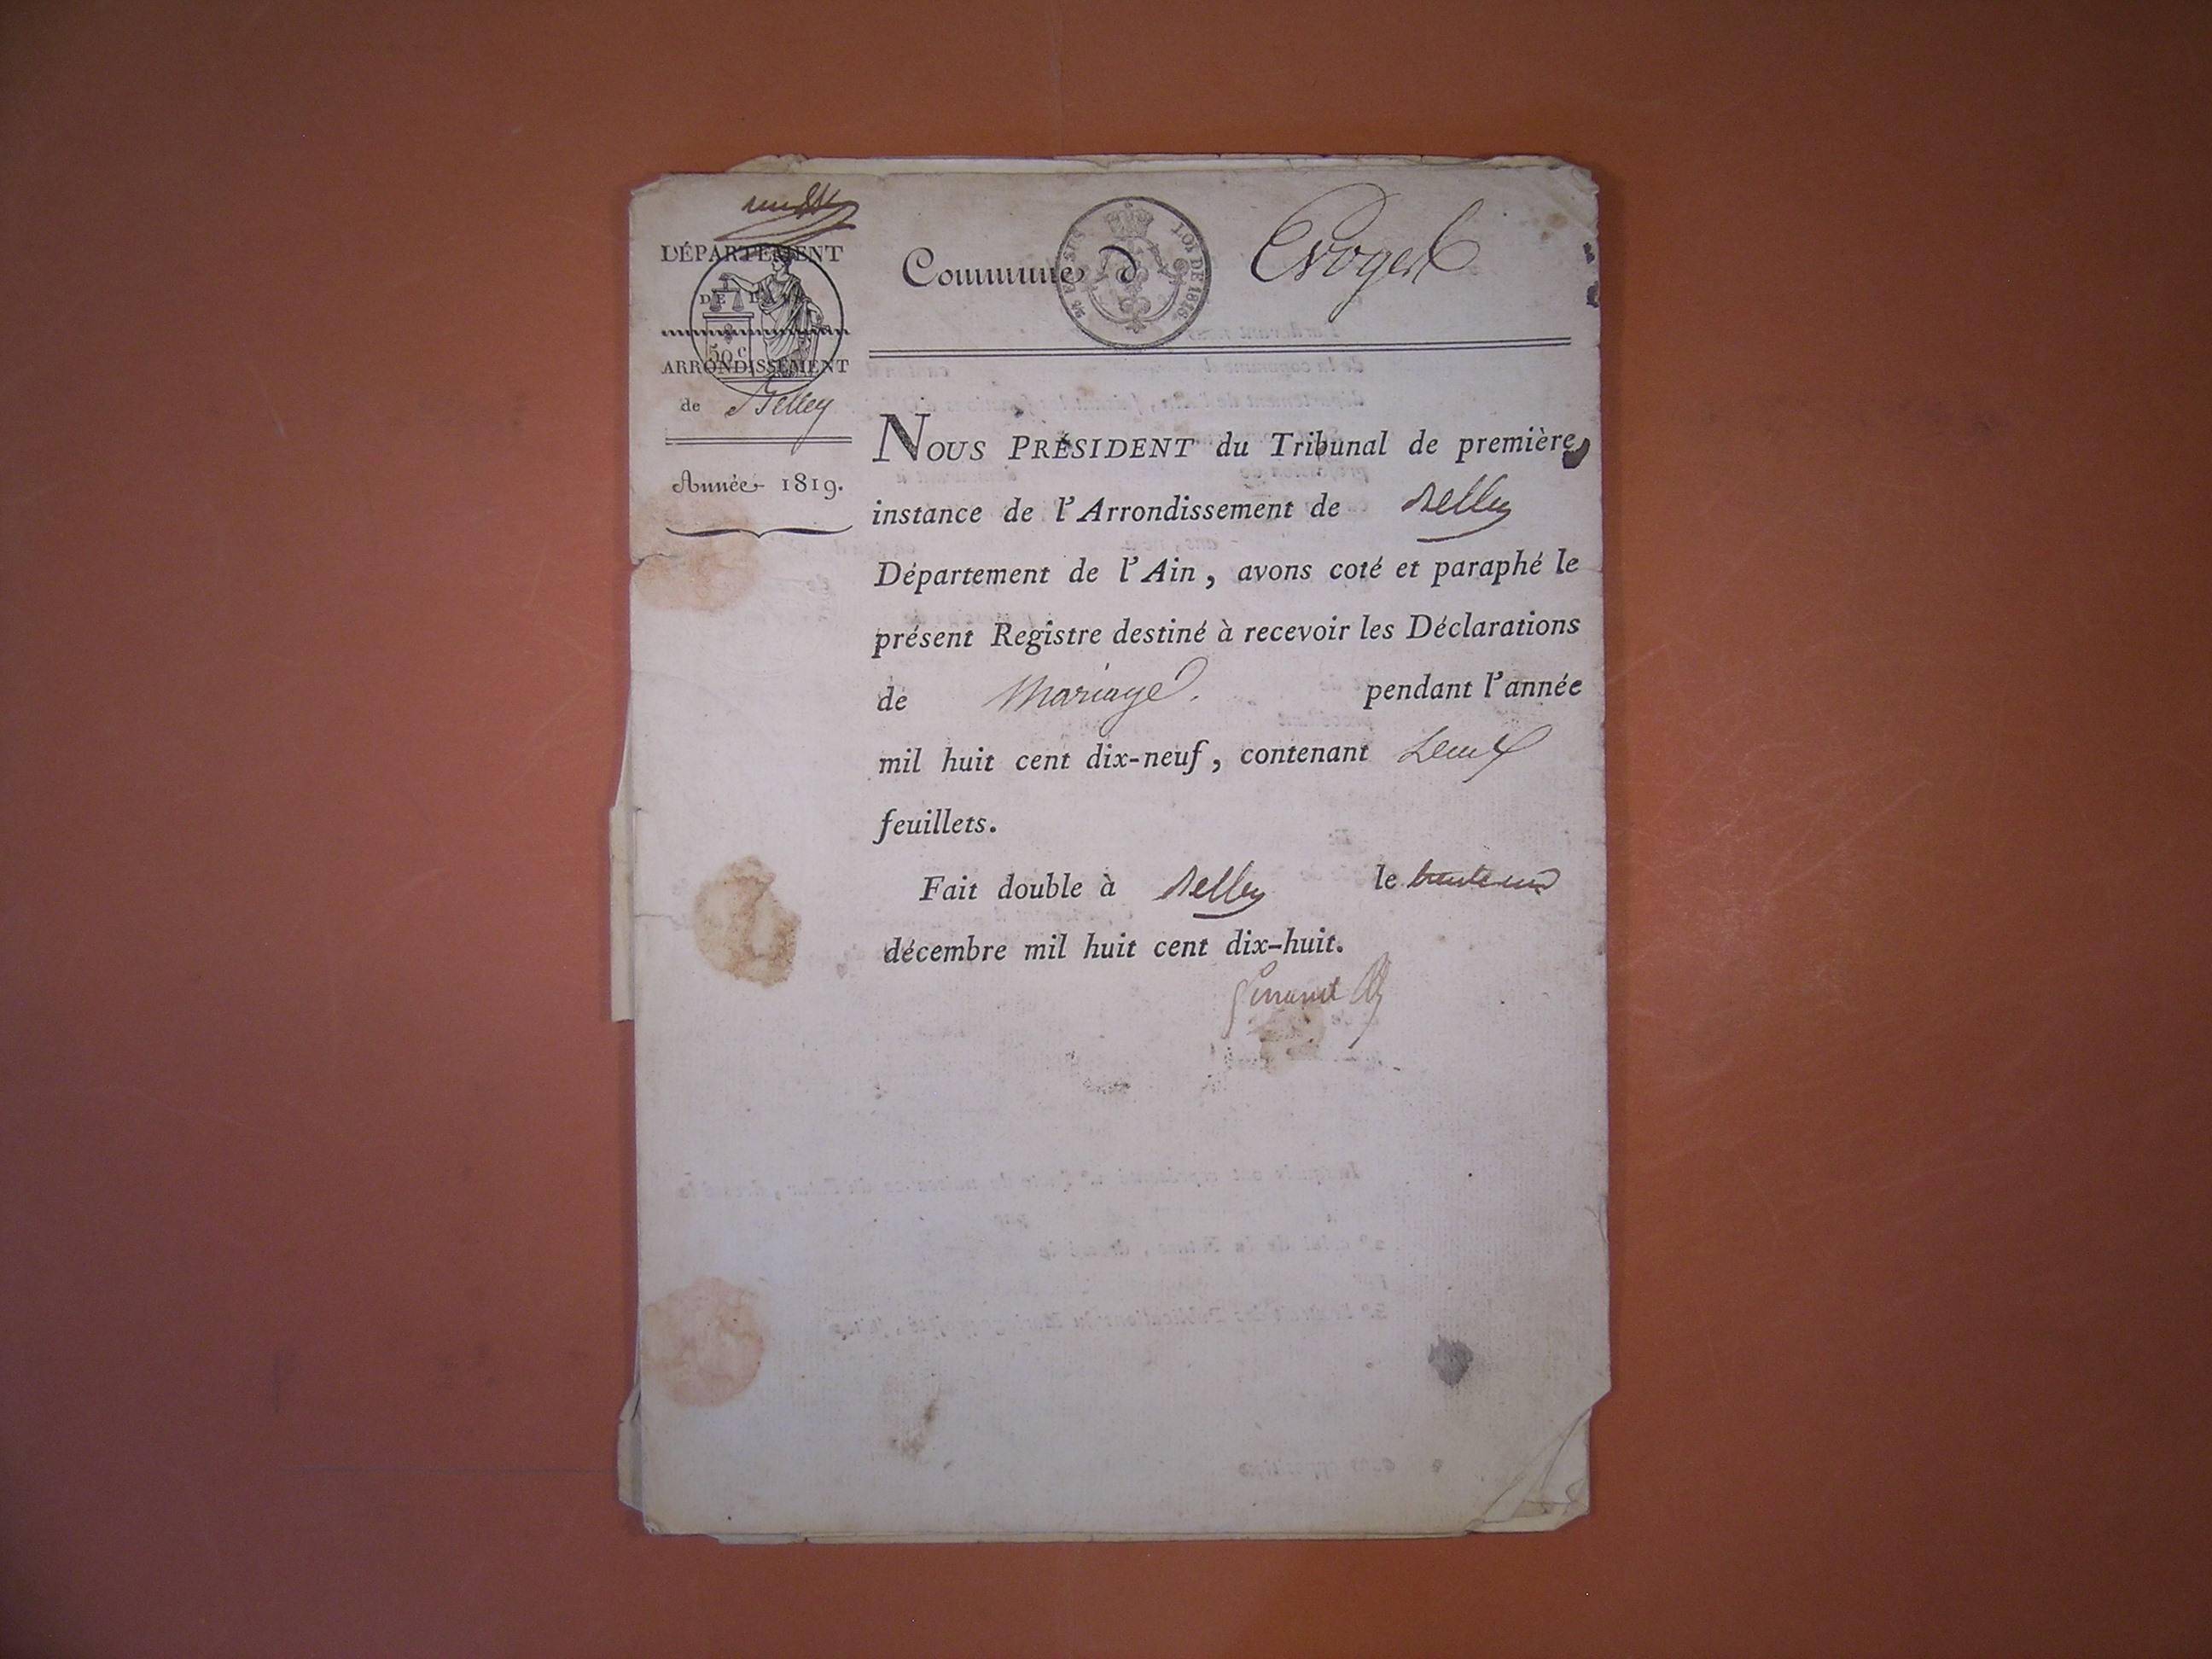 DÉPARTEMENT
DE L'AIN
50 c
ARRONDISSEMENT
de Belley
Année 1819.
Commune d'Evoges
LOI DE 1816.
NOUS PRÉSIDENT du Tribunal de première
instance de l'Arrondissement de Belley
Département de l'Ain, avons coté et paraphé le
présent Registre destiné à recevoir les Déclarations
de Mariage. pendant l'année
mil huit cent dix-neuf, contenant deux
feuillets.
Fait double à Belley le trente un
décembre mil huit cent dix-huit.